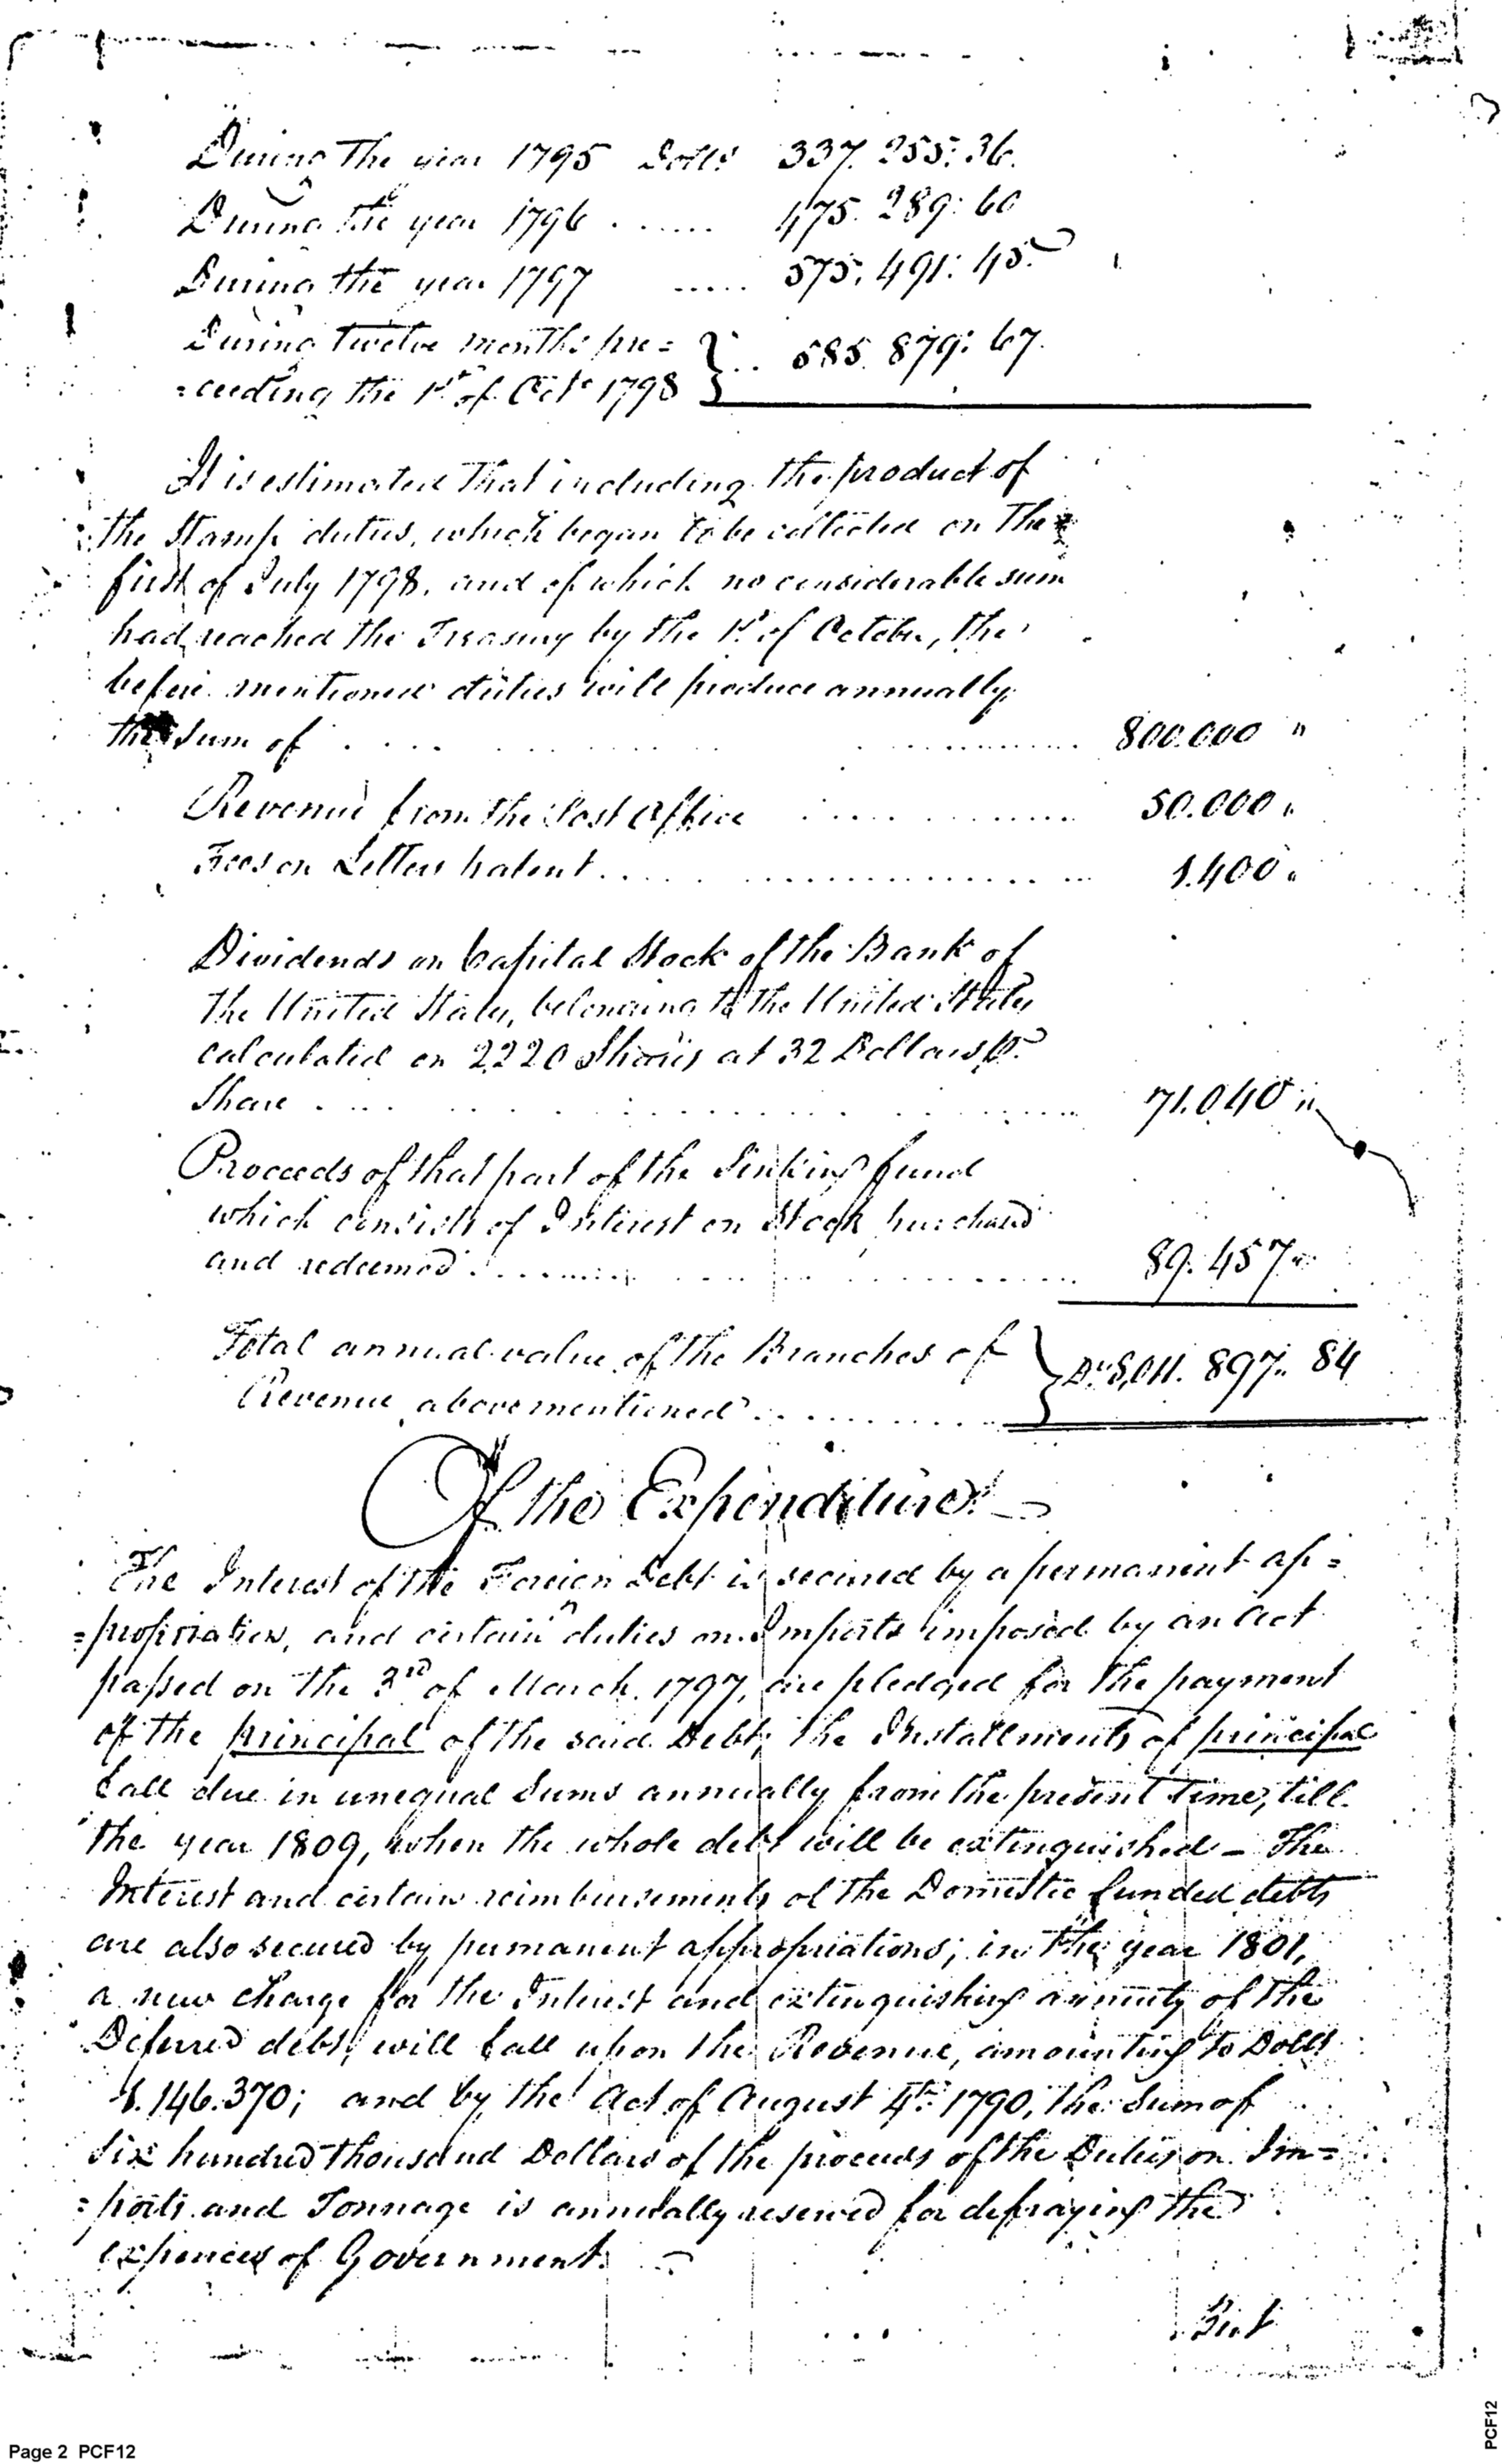 During The year 1795 Dolls 337.255:36.
During the year 1796 ...... 475.289:60
During the year 1797 ..... 575.491:45.
During twelve months pre=
=ceeding the 1st of Octr 1798 } .. 585.879:67.
It is estimated that including the product of
the Stamp duties, which began to be collected on The
first of July 1798, and of which no considerable sum
had reached the Treasury by the 1st of October, the
before mentioned duties will produce annually
the Sum of .... 800.000 "
Revenue from the Post Office .... 50.000 "
Fees on Letters patent .... 1.400 "
Dividends on Capital Stock of the Bank of
the United States, belonging to the United States
calculated on 2220 Shares at 32 Dollars pr
Share .... 71.040 "
Proceeds of that part of the Sinking fund
which consists of Interest on Stock purchased
and redeemed .... 89.457 "
Total annual value of the Branches of
Revenue abovementioned .... } Drs 8,011.897.. 84
Of the Expenditures. —
The Interest of the Foreign Debt is secured by a permanent ap=
=propriation, and certain duties on Imports imposed by an Act
passed on the 3rd of March 1797, are pledged for the payment
of the principal of the said Debt; the Installments of principal
fall due in unequal Sums annually from the present time, till
the year 1809, when the whole debt will be extinguished — The
Interest and certain reimbursements of the Domestic funded debts
are also secured by permanent appropriations; in the year 1801,
a new charge for the Interest and extinguishing annuity of the
Deferred debt, will fall upon the Revenue, amounting to Dolls
1.146.370; and by the Act of August 4th 1790, the Sum of
Six hundred thousand Dollars of the proceeds of the Duties on Im=
=ports and Tonnage is annually reserved for defraying the
expences of Government. —
But
Page 2 PCF12
PCF12